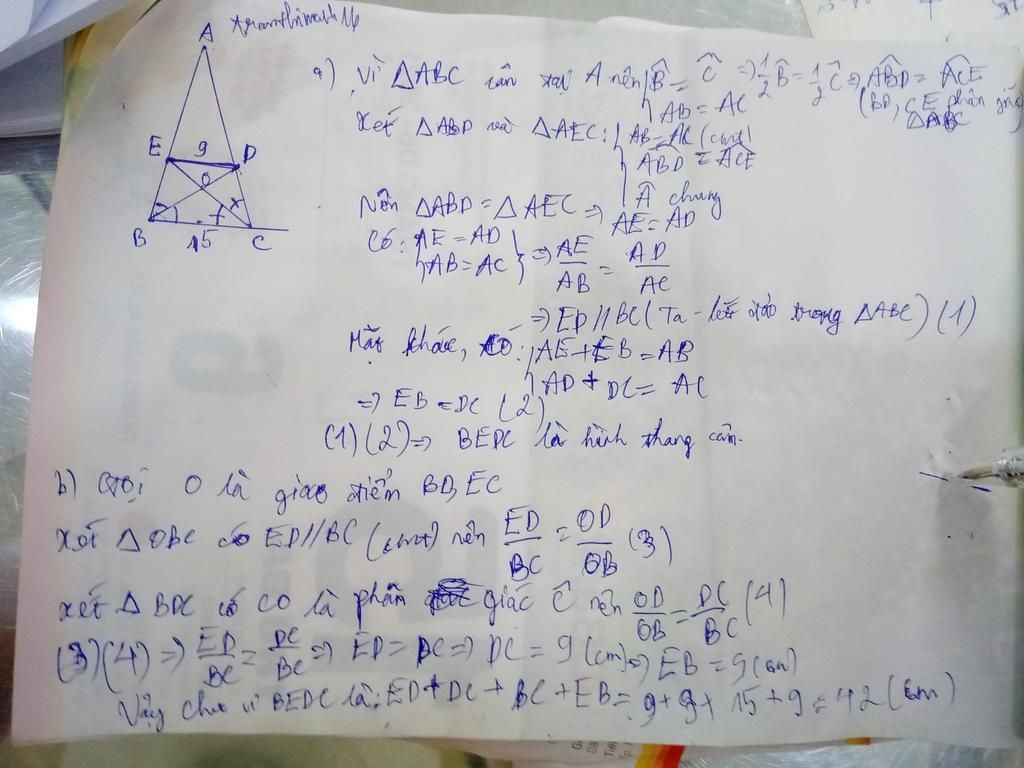 A
E 9 D
O
x
B 15 C
a) Vì △ABC cân tại A nên B̂ = Ĉ ⇒ 1/2 B̂ = 1/2 Ĉ ⇒ ABD̂ = ACÊ
AB = AC (BD, CE phân giác
△ABC
Xét △ABD và △AEC: AB = AC (cmt)
ABD̂ = ACÊ
 chung
Nên △ABD = △AEC ⇒ AE = AD
Có: AE = AD
AB = AC ⇒ AE/AB = AD/AC
⇒ ED // BC (Ta-lét đảo trong △ABC) (1)
Mặt khác, có: AE + EB = AB
AD + DC = AC
⇒ EB = DC (2)
(1)(2) ⇒ BEDC là hình thang cân.
b) Gọi O là giao điểm BD, EC
Xét △OBC có ED // BC (cmt) nên ED/BC = OD/OB (3)
Xét △BDC có CO là phân giác Ĉ nên OD/OB = DC/BC (4)
(3)(4) ⇒ ED/BC = DC/BC ⇒ ED = DC ⇒ DC = 9 (cm) ⇒ EB = 9 (cm)
Vậy chu vi BEDC là: ED + DC + BC + EB = 9 + 9 + 15 + 9 = 42 (cm)